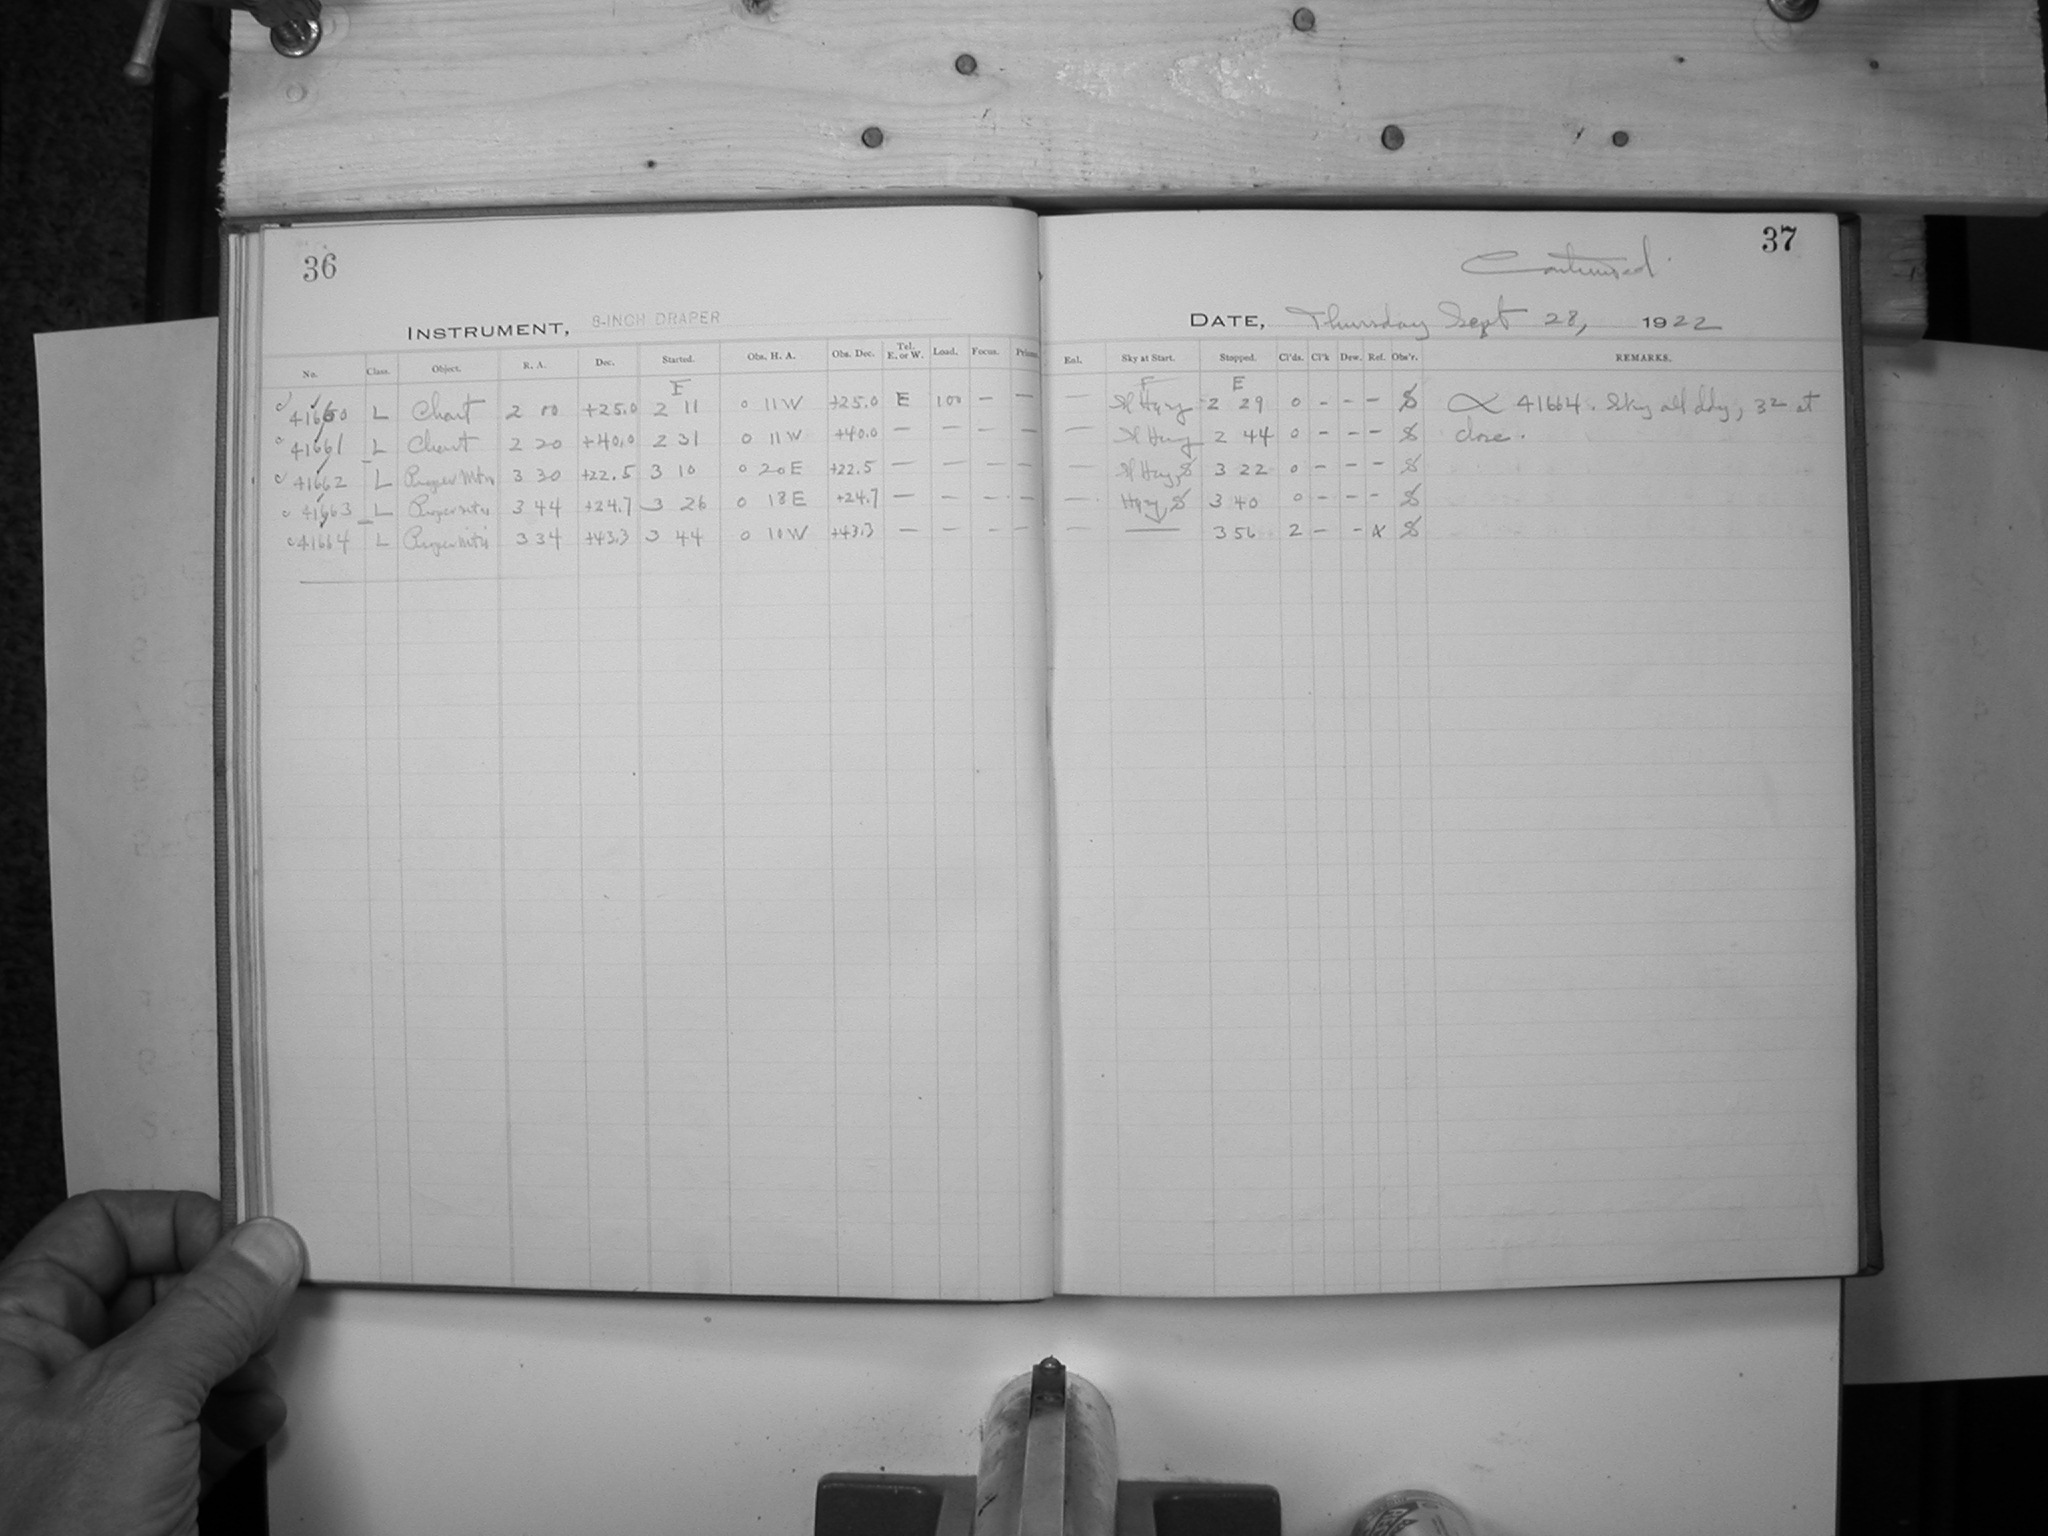 36
INSTRUMENT, 8-INCH DRAPER
No. Class. Object. R. A. Dec. Started. Obs. H. A. Obs. Dec. Tel. E. or W. Load. Focus. Prism
E
41660 L Chart 2 00 +25.0 2 11 0 11 W +25.0 E 100 — —
41661 L Chart 2 20 +40.0 2 31 0 11 W +40.0 — — — —
41662 L 3 30 +22.5 3 10 0 20 E +22.5 — — — —
41663 L 3 44 +24.7 3 26 0 18 E +24.7 — — — —
41664 L 3 34 +43.3 3 44 0 10 W +43.3 — — — —
37
Continued
DATE, Thursday Sept 28, 1922
Enl. Sky at Start. Stopped. Cl'ds. Cl'k Dew. Ref. Obs'r. REMARKS.
E
— Sl Hazy 2 29 0 - - - 41664. Sky all 32 at
— Sl Hazy 2 44 0 - - - close.
— Sl Hazy 3 22 0 - - -
— Hazy 3 40 0 - - -
— — 3 56 2 - - x